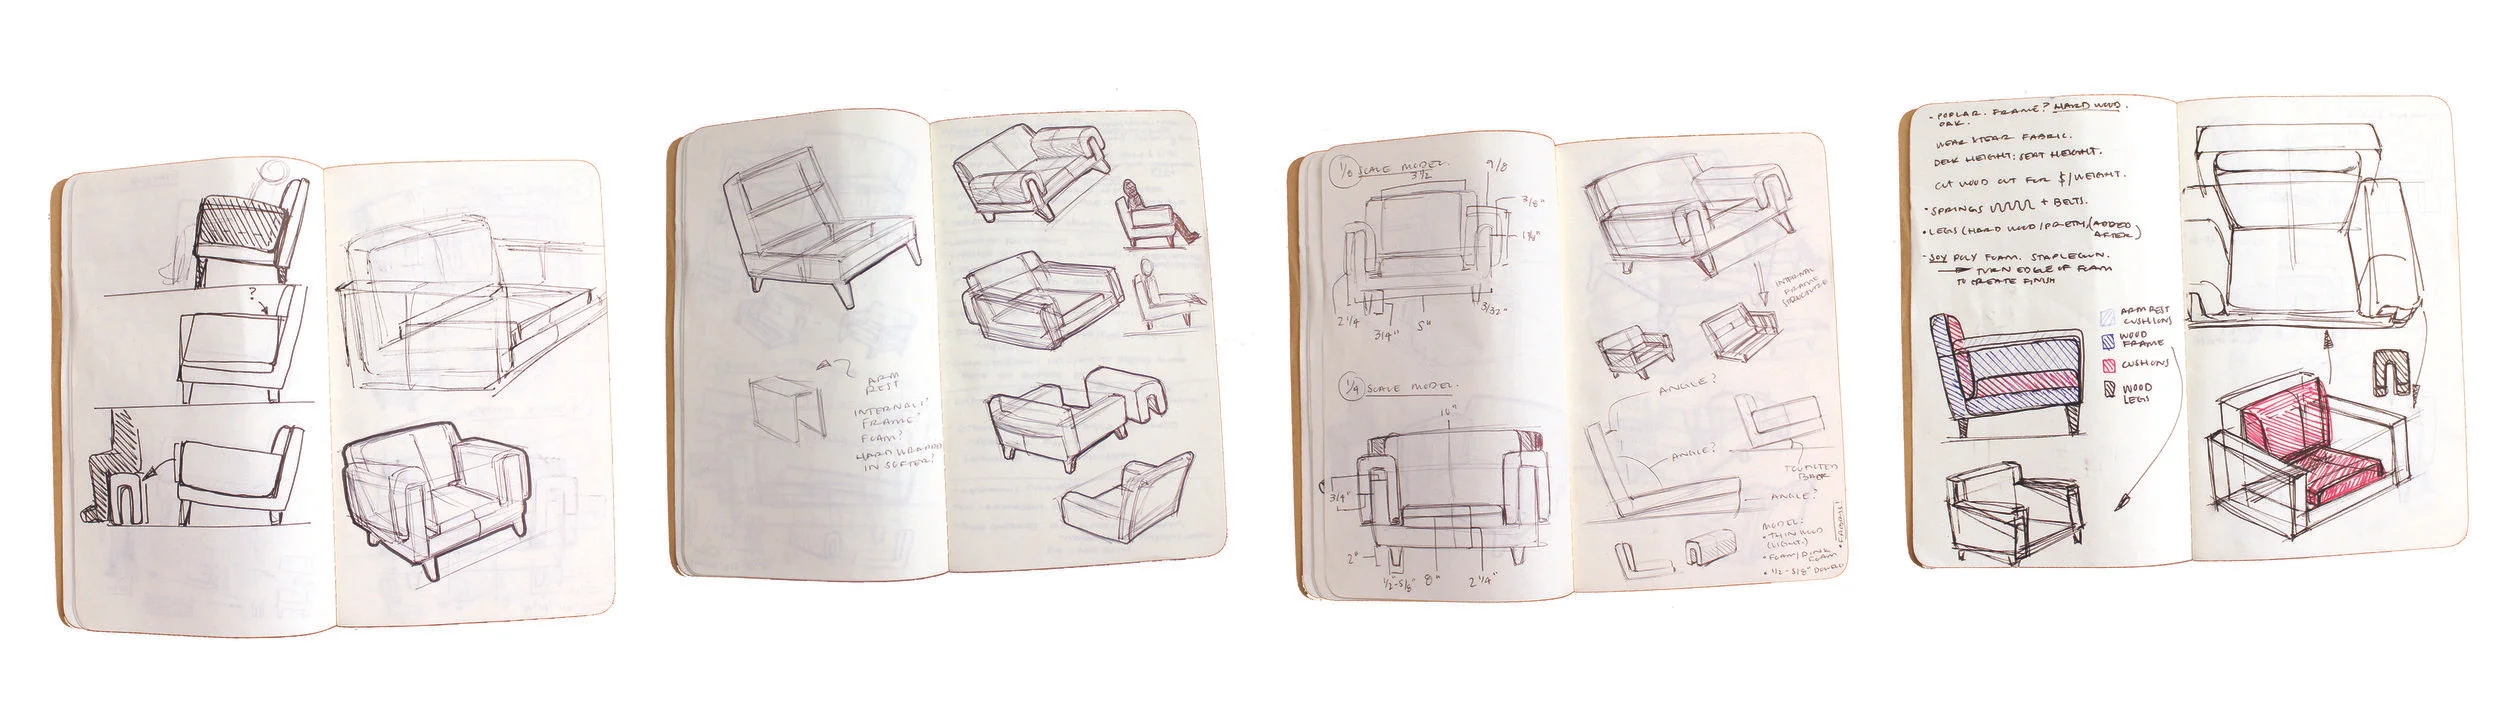 ?
ARM
REST
INTERNAL?
FRAME?
FOAM?
HARD WRAPPED
IN SOFTER?
1/8 SCALE MODEL.
3 1/2
9/8
3/8"
2 1/4
3/4"
5"
3/32"
INTERNAL
FRAME
STRUCTURE
1/4 SCALE MODEL.
10"
3/4"
2"
1/2-5/8"
8"
2 1/4"
ANGLE?
ANGLE?
ANGLE?
BACK
MODEL:
• THIN WOOD
(LIGHT.)
• FOAM/PINK FOAM
• 1/2-5/8" DOWEL
- POPLAR. FRAME? HARD WOOD.
OAK.
WEAR + TEAR FABRIC.
DECK HEIGHT: SEAT HEIGHT.
CUT WOOD OUT FOR $/WEIGHT.
• SPRINGS + BELTS.
• LEGS (HARD WOOD/PRETTY/ADDED
AFTER)
- SOY POLY FOAM. STAPLEGUN.
TURN EDGE OF FOAM
TO CREATE FINISH
ARM REST
CUSHIONS
WOOD
FRAME
CUSHIONS
WOOD
LEGS